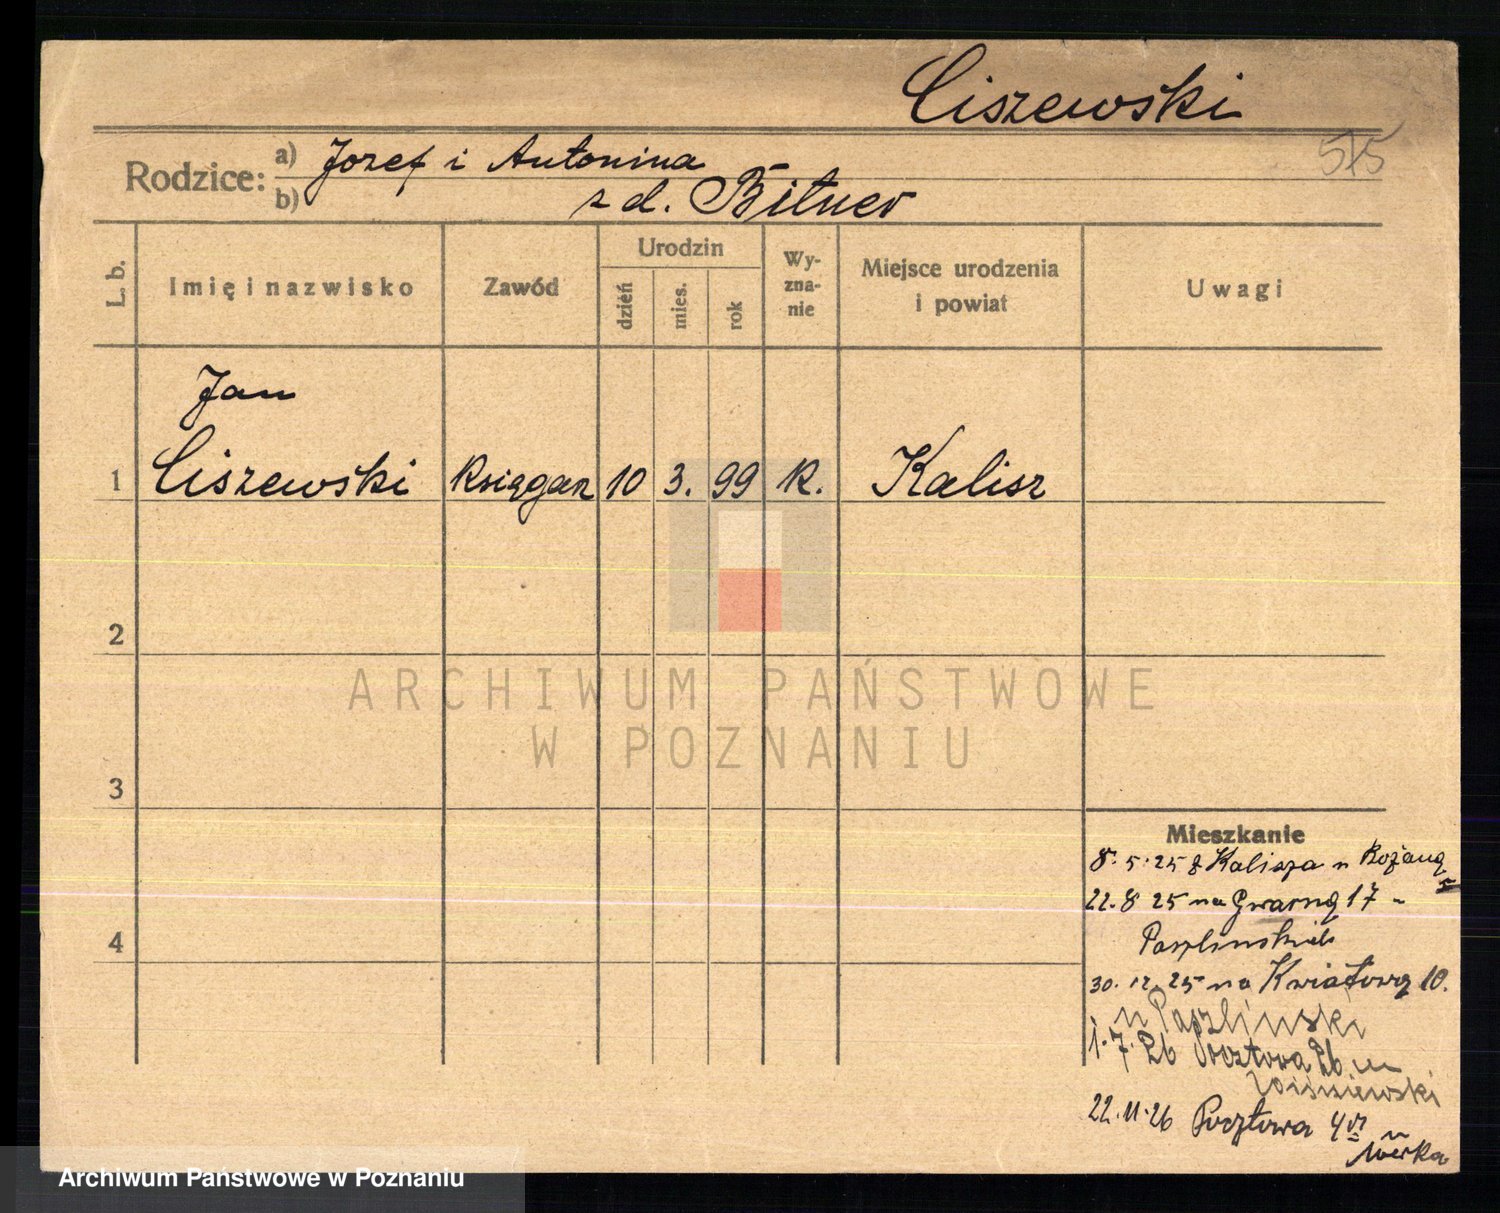 Ciszewski
575
Rodzice:
a) Józef i Antonina
b) z d. Bitner
L. b.
Imię i nazwisko
Zawód
Urodzin
dzień
mies.
rok
Wy-
zna-
nie
Miejsce urodzenia
i powiat
Uwagi
Jan
1 Ciszewski Księgarz 10 3. 99 K. Kalisz
2
3
4
ARCHIWUM PAŃSTWOWE
W POZNANIU
Mieszkanie
8.5.25 z Kalisza n Różaną
5
22.8 25 na Gwarną 17 -
30.12.25 na Kwiatową 10.
1.7.26 Pocztowa 26 u
22.11.26 Pocztowa 4 u
Archiwum Państwowe w Poznaniu